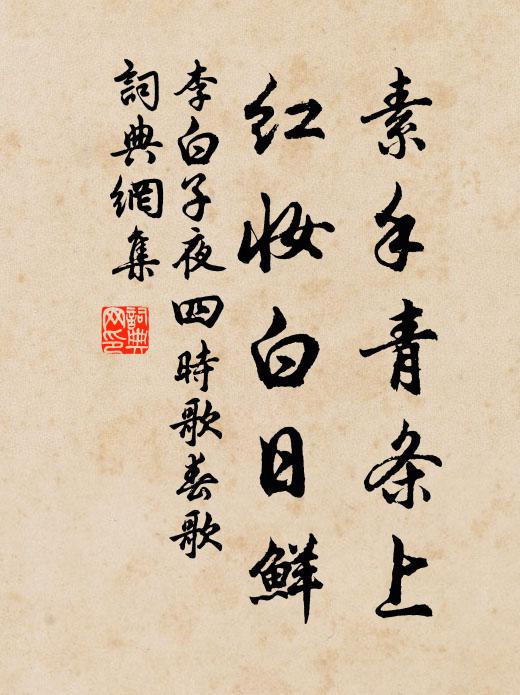 素手青条上
红妆白日鮮
李白子夜四時歌春歌
詞典網集
詞典网印